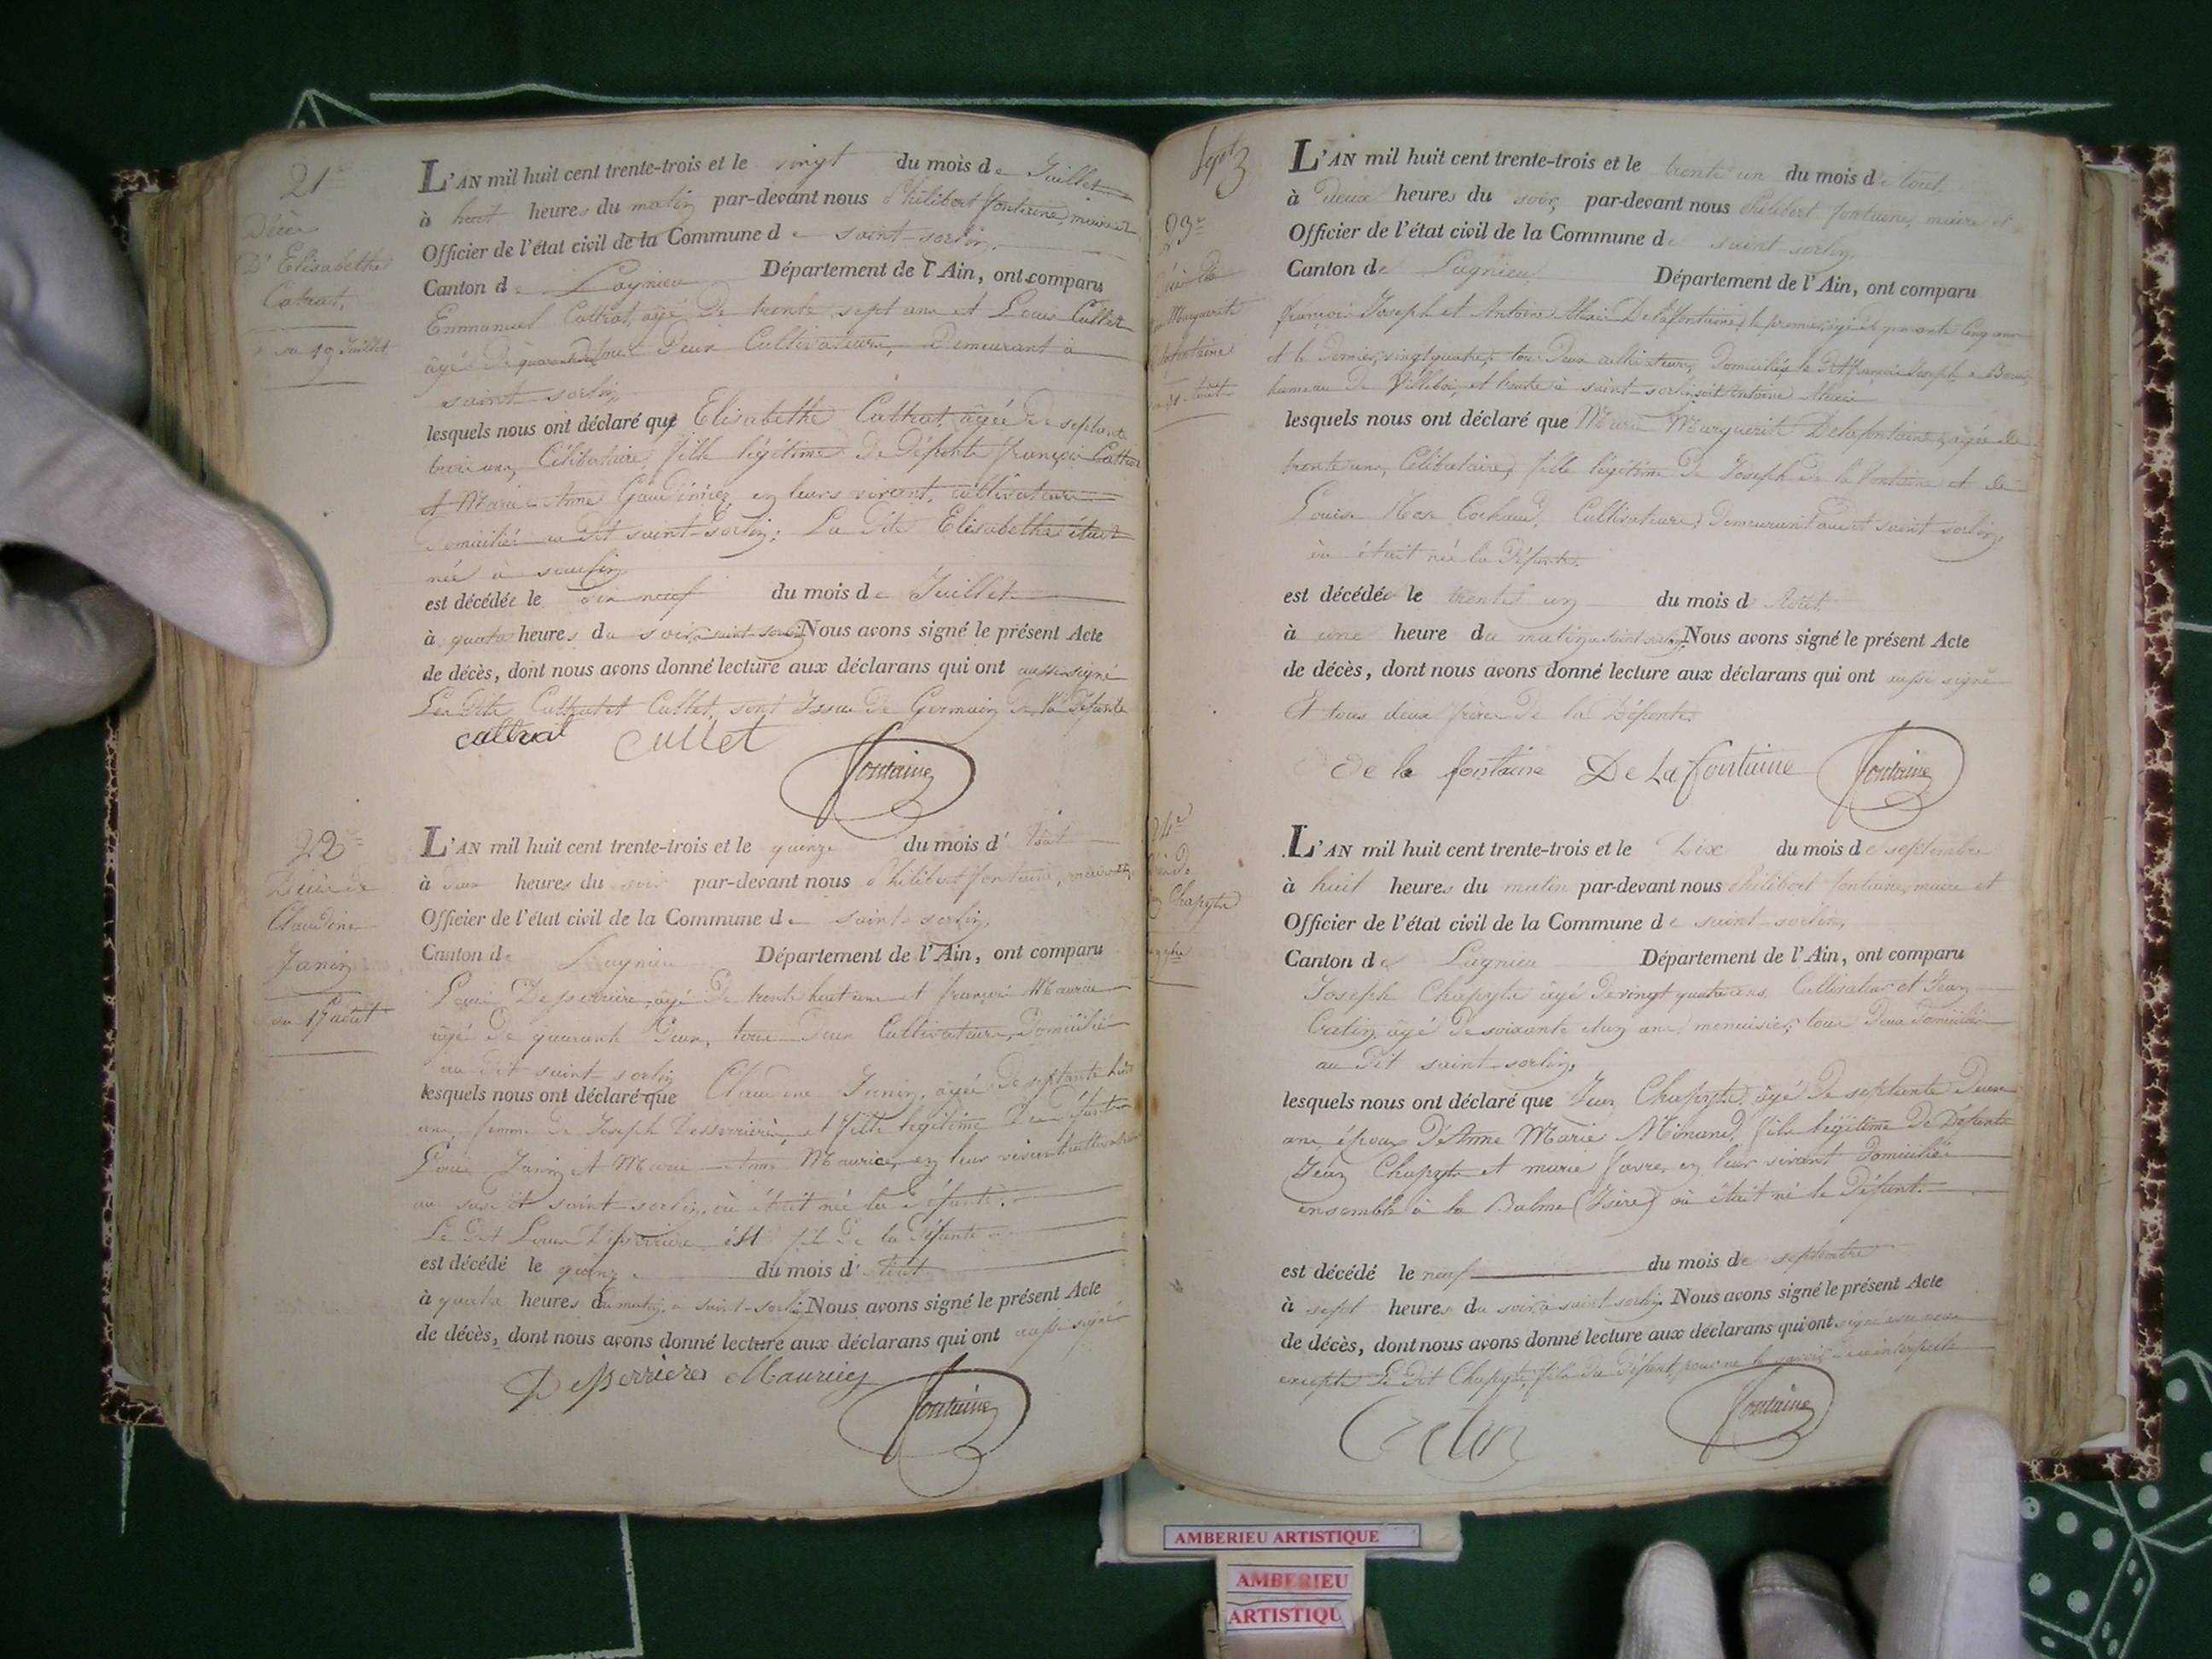 21e
Décès
D'Elisabethe
Catrat,
du 19 Juillet
L'AN mil huit cent trente-trois et le vingt du mois de Juillet
à huit heures du matin par-devant nous Philibert fontaine, maire et
Officier de l'état civil de la Commune de saint-sorlin,
Canton de Lagnieu Département de l'Ain, ont comparu
Emmanuel Cattrat, âgé De trente sept ans et Louis Cullet
âgé De quarante Deux Cultivateurs, Demeurant à
saint sorlin,
lesquels nous ont déclaré que Elisabethe Cattrat, âgée De septante
trois ans, Célibataire, fille légitime De Défunts françois Cattrat
et Marie-Anne en leurs vivant, cultivateurs
Domiciliés au Dit saint-Sorlin; La Dite Elisabethe était
née à
est décédée le Dix neuf du mois de Juillet
à quatre heures du soir, à saint-sorlin Nous avons signé le présent Acte
de décès, dont nous avons donné lecture aux déclarans qui ont aussi signé
Les Dits Cattrat et Cullet, sont Issus De Germain De la Défunte
cattrat cullet
fontaine
22e
Décès de
Claudine
Janin
du 15 août
L'AN mil huit cent trente-trois et le quinze du mois d'Août
à deux heures du soir par-devant nous Philibert fontaine, maire et
Officier de l'état civil de la Commune de saint-sorlin,
Canton de Lagnieu Département de l'Ain, ont comparu
Louis Desserrière, âgé De trente huit ans et françois Maurice
âgé De quarante Deux, tous Deux Cultivateurs, Domiciliés
au Dit saint-sorlin
lesquels nous ont déclaré que Claudine Janin, âgée De septante huit
ans, femme De Joseph Desserrière, et fille légitime Des Défunts
Louis Janin et Marie-Anne Maurice, en leur vivant cultivateurs
au susdit saint-sorlin, où était née la Défunte.
Le Dit Louis Desserrière est fils De la Défunte
est décédé le quinze du mois d'Août
à quatre heures du matin, à saint-sorlin Nous avons signé le présent Acte
de décès, dont nous avons donné lecture aux déclarans qui ont aussi signé
Desserrieres Maurice
fontaine
Sept 3
23e
Décès De
Marguerite
Delafontaine
du 31 Août
L'AN mil huit cent trente-trois et le trente un du mois d'Août
à Deux heures du soir, par-devant nous Philibert fontaine, maire et
Officier de l'état civil de la Commune de saint sorlin,
Canton de Lagnieu Département de l'Ain, ont comparu
françois Joseph et Antoine Alexis Delafontaine, le premier, âgé de quarante cinq ans
et le Dernier, vingt quatre, tous Deux cultivateurs, Domiciliés, le Dit françois Joseph à
hameau De Villebois, et l'autre à saint-sorlin, soit Antoine Alexis
lesquels nous ont déclaré que Marie Marguerite Delafontaine, âgée de
trente ans, Célibataire, fille légitime De Joseph De la fontaine et de
Louise Rose Cochaud, Cultivateurs, Demeurant audit saint sorlin,
où était née la Défunte.
est décédée le trente un du mois d'Août
à une heure du matin, à saint sorlin, Nous avons signé le présent Acte
de décès, dont nous avons donné lecture aux déclarans qui ont aussi signé
Et tous deux frères De la Défunte.
De la fontaine De La fontaine fontaine
24e
Décès De
Chapyte
L'AN mil huit cent trente-trois et le Dix du mois de septembre
à huit heures du matin par-devant nous Philibert fontaine, maire et
Officier de l'état civil de la Commune de saint-sorlin,
Canton de Lagnieu Département de l'Ain, ont comparu
Joseph Chapyte âgé De vingt quatre ans, Cultivateur et Jean
âgé De soixante et un ans, menuisier, tous Deux Domiciliés
au Dit saint-sorlin,
lesquels nous ont déclaré que Jean Chapyte, âgé De septante Deux
ans époux D'Anne Marie Minand, fils légitime De Défunts
Jean Chapyte et marie favre, en leur vivant Domiciliés
ensemble à la Balme (Isère) où était né le Défunt.
est décédé le neuf du mois de septembre
à sept heures du soir à saint sorlin, Nous avons signé le présent Acte
de décès, dont nous avons donné lecture aux déclarans qui ont signé avec nous
excepté Le Dit Chapyte, fils Du Défunt, pour ne le savoir
fontaine
AMBERIEU ARTISTIQUE
AMBERIEU
ARTISTIQU